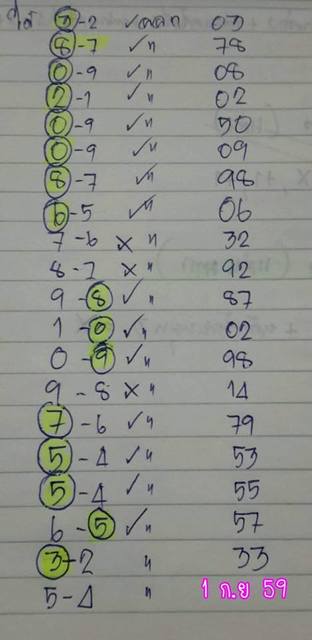 ได้ 3-2 ✓ ออก 03
8-7 ✓ " 78
0-9 ✓ " 08
2-1 ✓ " 02
0-9 ✓ " 50
0-9 ✓ " 09
8-7 ✓ " 98
6-5 ✓ " 06
7-6 × " 32
8-7 × " 92
9-8 ✓ " 87
1-0 ✓ " 02
0-9 ✓ " 98
9-8 × " 14
7-6 ✓ " 79
5-4 ✓ " 53
5-4 ✓ " 55
6-5 ✓ " 57
3-2 " 33
5-4 " 1 ก.ย 59